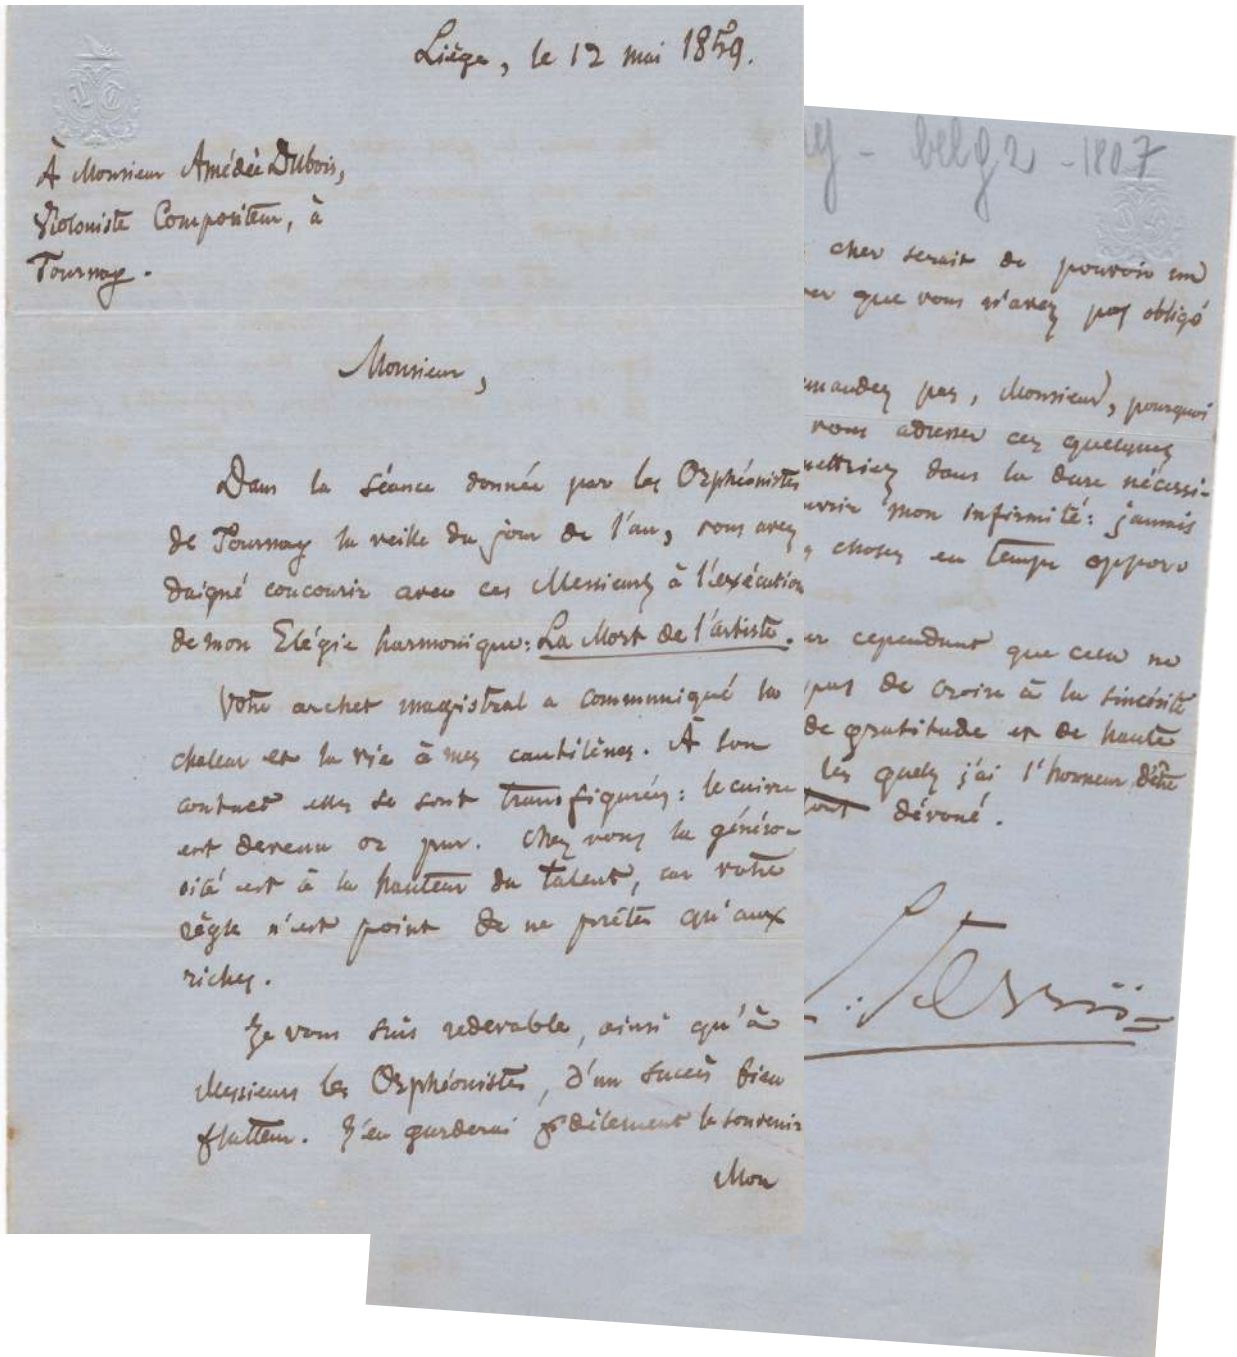 Liège, le 12 mai 1859.
À Monsieur Amédée Dubois,
Violoniste Compositeur, à
Tournay.
Monsieur,
Dans la séance donnée par les Orphéonistes
de Tournay la veille du jour de l'an, vous avez
daigné concourir avec ces Messieurs à l'exécution
de mon Elégie harmonique: La Mort de l'artiste.
Votre archet magistral a communiqué la
chaleur et la vie à mes cantilènes. À son
contact elles se sont transfigurées: le cuivre
est devenu or pur. Chez vous la généro-
sité est à la hauteur du talent, car votre
règle n'est point de ne prêter qu'aux
riches.
Je vous suis redevable, ainsi qu'à
Messieurs les Orphéonistes, d'un succès bien
flatteur. J'en garderai fidèlement le souvenir
Mon
- belge - 1807
cher serait de pouvoir un
que vous n'avez pas obligé
pas, Monsieur, pourquoi
vous adresser ces quelques
dans la dure nécessi-
mon infirmité: jamais
choses en temps oppor
cependant que cela ne
pas de croire à la sincérité
de gratitude et de haute
les quels j'ai l'honneur d'être
tout dévoué.